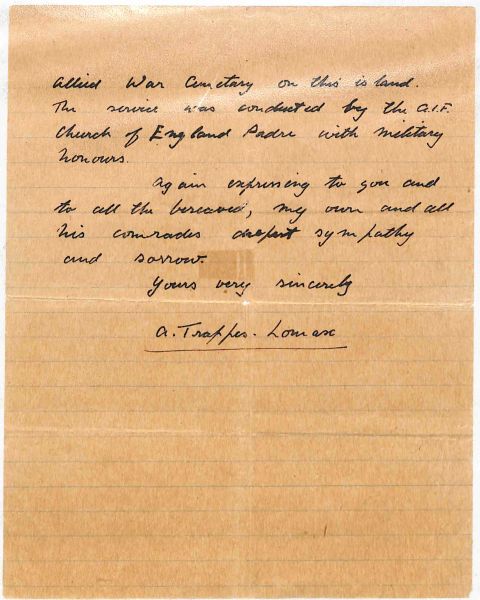 Allied War Cemetary on this island.
The service was conducted by the A.I.F.
Church of England Padre with military
honours.
Again expressing to you and
to all the bereaved, my own and all
his comrades deepest sympathy
and sorrow.
Yours very sincerely
A. Trappes-Lomax